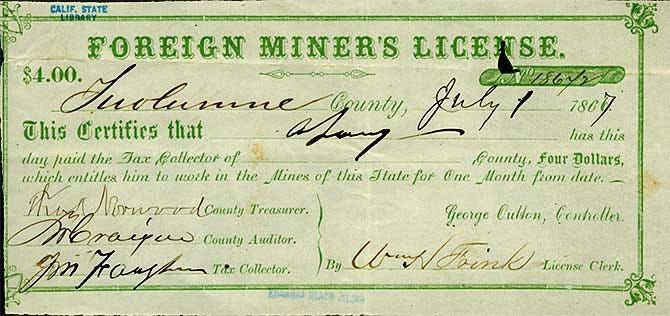 CALIF. STATE
LIBRARY
FOREIGN MINER'S LICENSE.
$4.00. No 18672
Tuolumne County, July 1 1867
This Certifies that has this
day paid the Tax Collector of County, Four Dollars,
which entitles him to work in the Mines of this State for One Month from date.
Norwood County Treasurer. George Oulton, Controller.
County Auditor.
Tax Collector. By Wm H Frink License Clerk.